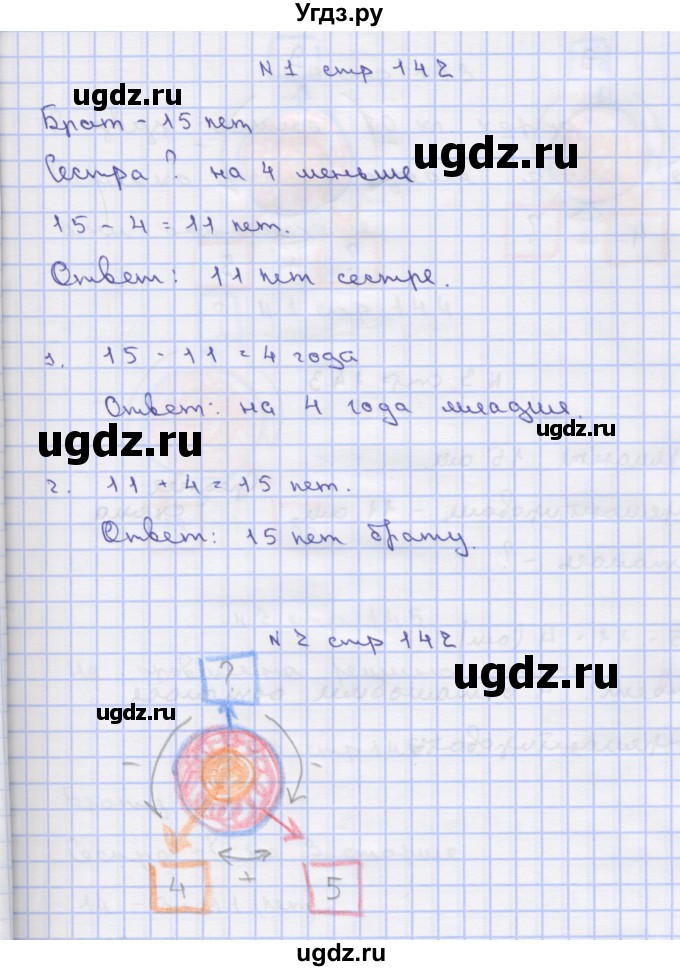 Угдз.ру
N1 стр 142
ugdz.ru
Брат - 15 лет
ugdz.ru
Сестра ? на 4 меньше
15 - 4 = 11 лет.
Ответ: 11 лет сестре.
1. 15 - 11 = 4 года
Ответ: на 4 года младше.
ugdz.ru
ugdz.ru
2. 11 + 4 = 15 лет.
Ответ: 15 лет брату.
N2 стр 142
ugdz.ru
?
ugdz.ru
- -
4 + 5
ugdz.ru